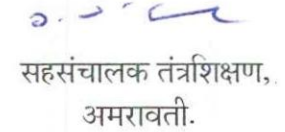 सहसंचालक तंत्रशिक्षण,
अमरावती.